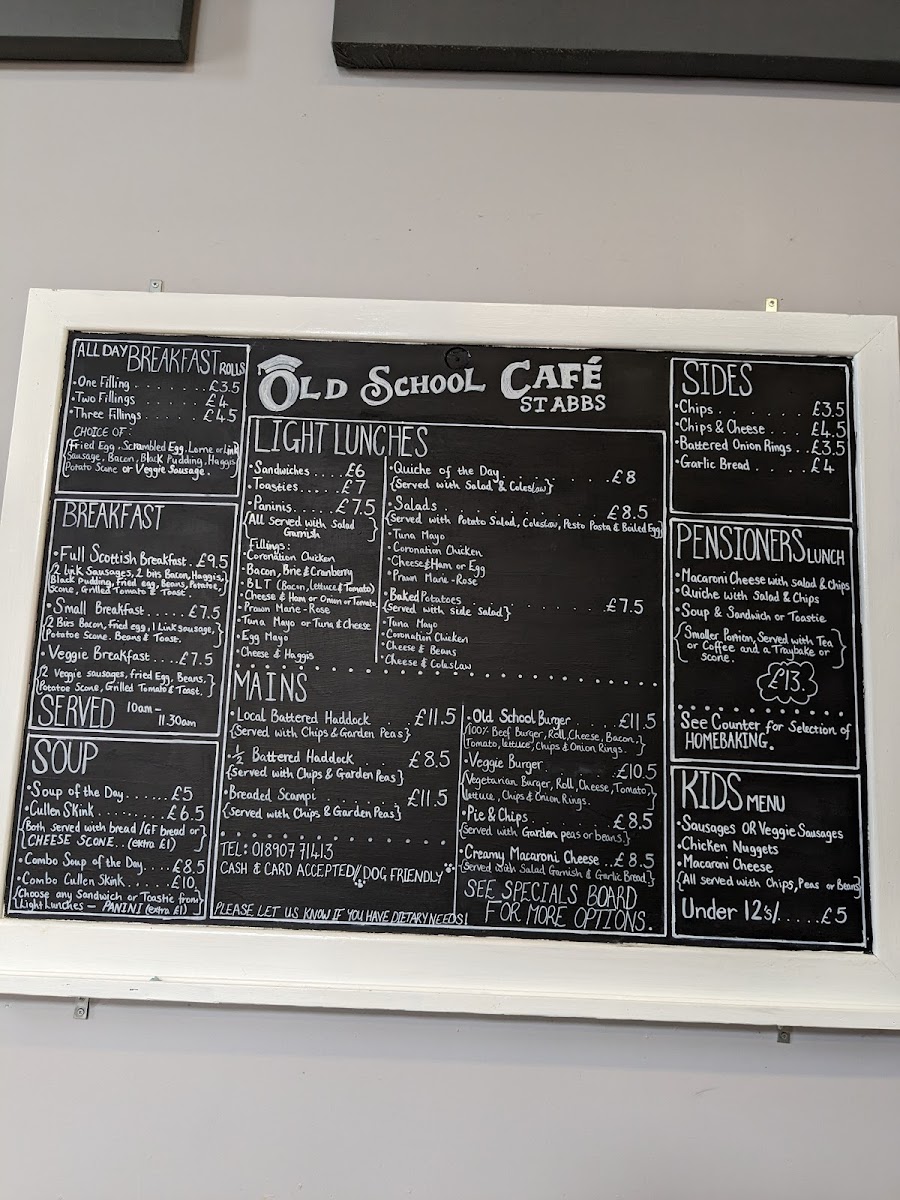 OLD SCHOOL CAFÉ
ST ABBS
ALL DAY BREAKFAST ROLLS
•One Filling........ £3.5
•Two Fillings £4
•Three Fillings..... £4.5
CHOICE OF:
{Fried Egg, Scrambled Egg, Lorne or Link}
Sausage, Bacon, Black Pudding, Haggis
Potato Scone or Veggie Sausage.
BREAKFAST
•Full Scottish Breakfast. £9.5
{2 Link Sausages, 2 bits Bacon, Haggis,}
Black Pudding, Fried egg, Beans, Potatoe,
Scone, Grilled Tomato & Toast.
•Small Breakfast.....£7.5
{2 Bits Bacon, Fried egg, 1 Link sausage,}
Potatoe Scone. Beans & Toast.
•Veggie Breakfast....£7.5
{2 Veggie sausages, fried Egg, Beans,}
Potatoe Scone, Grilled Tomato & Toast.
SERVED 10am-
11.30am
SOUP
•Soup of the Day......£5
•Cullen Skink........£6.5
{Both served with bread/GF bread or}
CHEESE SCONE.. (extra £1)
•Combo Soup of the Day....£8.5
•Combo Cullen Skink....£10
{Choose any Sandwich or Toastie from}
Light Lunches - PANINI (extra £1)
LIGHT LUNCHES
•Sandwiches.... £6
•Toasties..... £7
•Paninis...... £7.5
{All Served with Salad}
Garnish
Fillings:
•Coronation Chicken
•Bacon, Brie & Cranberry
•BLT (Bacon, lettuce & Tomato)
•Cheese & Ham or Onion or Tomato
•Prawn Marie-Rose
•Tuna Mayo or Tuna & Cheese
•Egg Mayo
•Cheese & Haggis
•Quiche of the Day.......... £8
{Served with Salad & Coleslaw}
•Salads............ £8.5
{Served with Potato Salad, Coleslaw, Pesto Pasta & Boiled Egg}
•Tuna Mayo
•Coronation Chicken
•Cheese & Ham or Egg
•Prawn Marie-Rose
•Baked Potatoes.......... £7.5
{Served with side Salad}
•Tuna Mayo
•Coronation Chicken
•Cheese & Beans
•Cheese & Coleslaw
MAINS
•Local Battered Haddock ....£11.5
{Served with Chips & Garden Peas}
•½ Battered Haddock.... £8.5
{Served with Chips & Garden Peas}
•Breaded Scampi £11.5
{Served with Chips & Garden Peas}
TEL: 01890771413
CASH & CARD ACCEPTED/DOG FRIENDLY
PLEASE LET US KNOW IF YOU HAVE DIETARY NEEDS!
•Old School Burger.... £11.5
{100% Beef Burger, Roll, Cheese, Bacon,}
Tomato, lettuce, Chips & Onion Rings.
•Veggie Burger......£10.5
{Vegetarian Burger, Roll, Cheese, Tomato}
lettuce, Chips & Onion Rings.
•Pie & Chips......... £8.5
{Served with Garden peas or beans}
•Creamy Macaroni Cheese..£8.5
{Served with Salad Garnish & Garlic Bread}
SEE SPECIALS BOARD
FOR MORE OPTIONS.
SIDES
•Chips......... £3.5
•Chips & Cheese.... £4.5
•Battered Onion Rings..£3.5
•Garlic Bread..... £4
PENSIONERS LUNCH
•Macaroni Cheese with salad & Chips
•Quiche with Salad & Chips
•Soup & Sandwich or Toastie
{Smaller Portion, Served with Tea}
or Coffee and a Traybake or
scone.
£13.
See Counter for Selection of
HOMEBAKING.
KIDS MENU
•Sausages OR Veggie Sausages
•Chicken Nuggets
•Macaroni Cheese
{All served with Chips, Peas or Beans}
Under 12's/.....£5